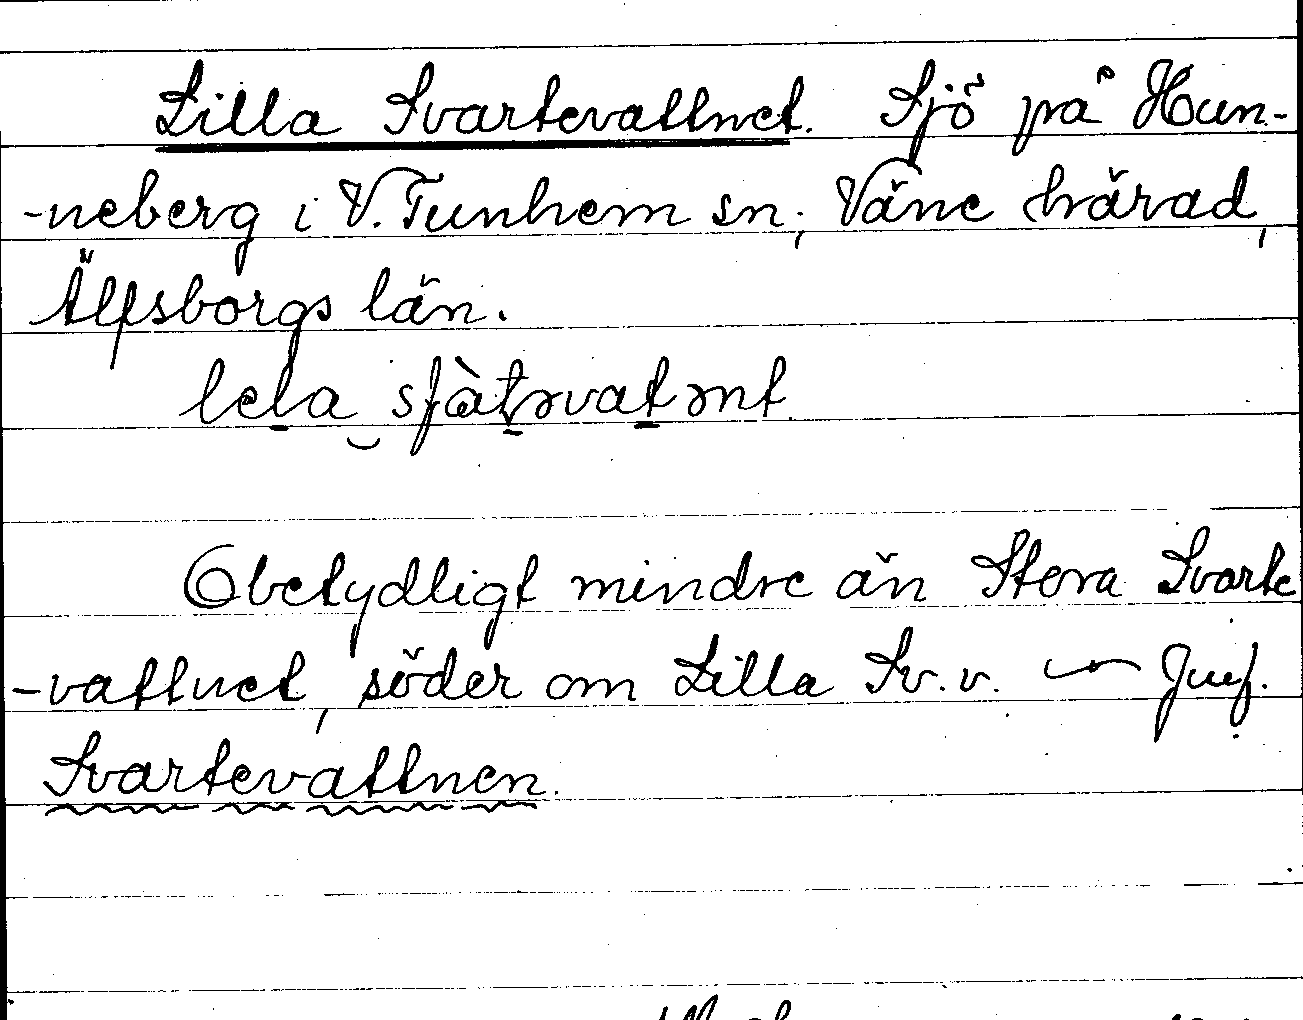 Lilla Svartevattnet. Sjö på Hun-
-neberg i V. Tunhem sn, Väne härad,
Älfsborgs län.
Obetydligt mindre än Stora Svarte
-vattnet, söder om Lilla Sv. v. — Jmf.
Svartevattnen.